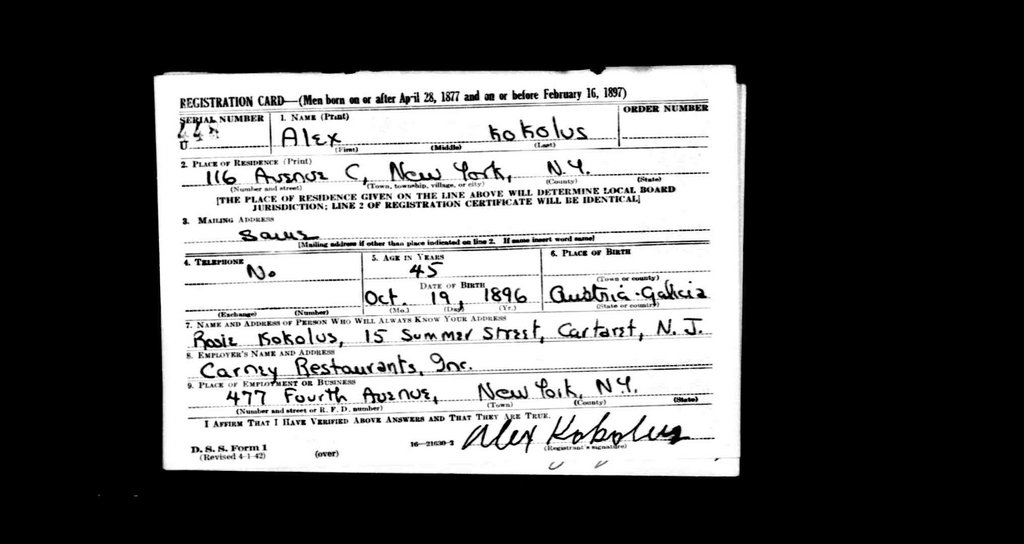 REGISTRATION CARD—(Men born on or after April 28, 1877 and on or before February 16, 1897)
SERIAL NUMBER 1. NAME (Print) ORDER NUMBER
U
ALEX KOKOLUS
(First) (Middle) (Last)
2. PLACE OF RESIDENCE (Print)
116 Avenue C, New York, N.Y.
(Number and street) (Town, township, village, or city) (County) (State)
[THE PLACE OF RESIDENCE GIVEN ON THE LINE ABOVE WILL DETERMINE LOCAL BOARD
JURISDICTION; LINE 2 OF REGISTRATION CERTIFICATE WILL BE IDENTICAL]
3. MAILING ADDRESS
Same
[Mailing address if other than place indicated on line 2. If same insert word same]
4. TELEPHONE 5. AGE IN YEARS 6. PLACE OF BIRTH
No 45
DATE OF BIRTH (Town or county)
Oct. 19, 1896 Austria-Galicia
(Exchange) (Number) (Mo.) (Day) (Yr.) (State or country)
7. NAME AND ADDRESS OF PERSON WHO WILL ALWAYS KNOW YOUR ADDRESS
Rosie Kokolus, 15 Summer Street, Cartaret, N.J.
8. EMPLOYER'S NAME AND ADDRESS
Carney Restaurants, Inc.
9. PLACE OF EMPLOYMENT OR BUSINESS
477 Fourth Avenue, New York, N.Y.
(Number and street or R. F. D. number) (Town) (County) (State)
I AFFIRM THAT I HAVE VERIFIED ABOVE ANSWERS AND THAT THEY ARE TRUE.
D. S. S. Form 1 16—21630-2 Alex Kokolus
(Revised 4-1-42) (over) (Registrant's signature)